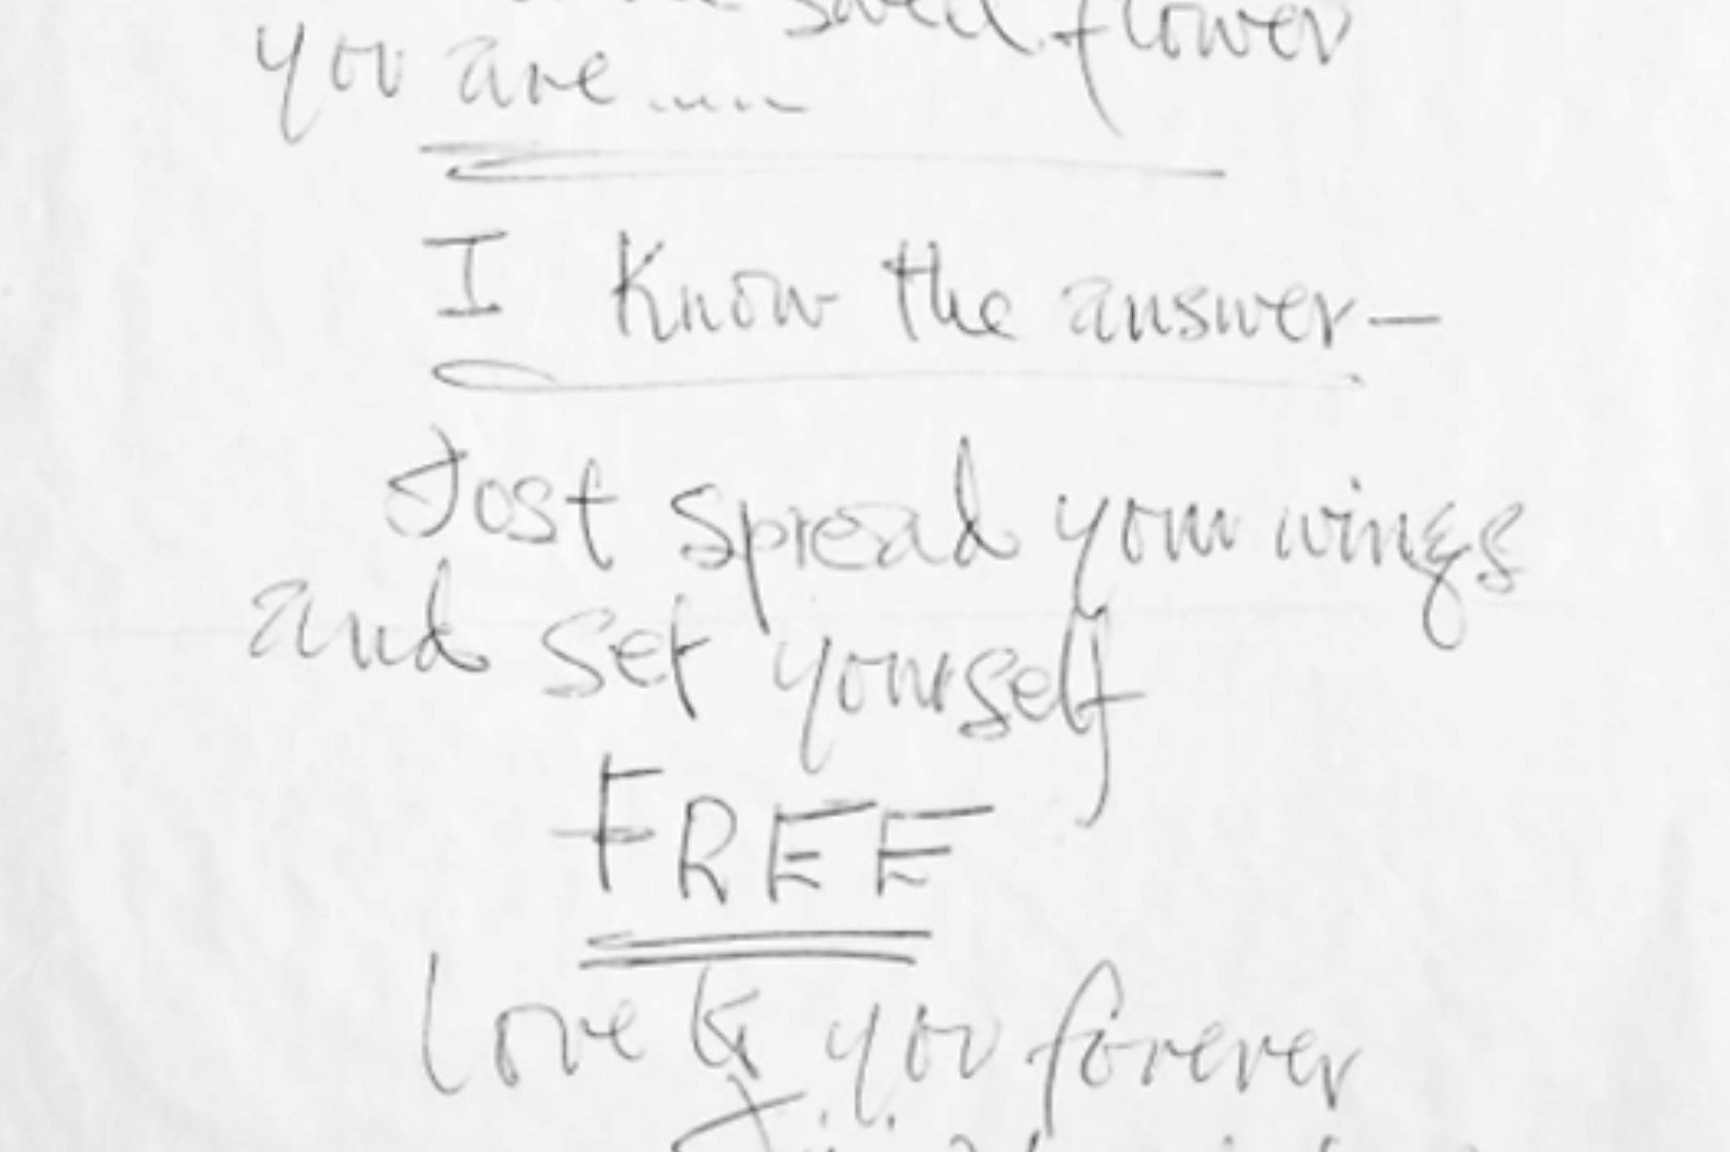 flower
you are.....
I Know the answer—
Just spread your wings
and set yourself
FREE
Love to you forever